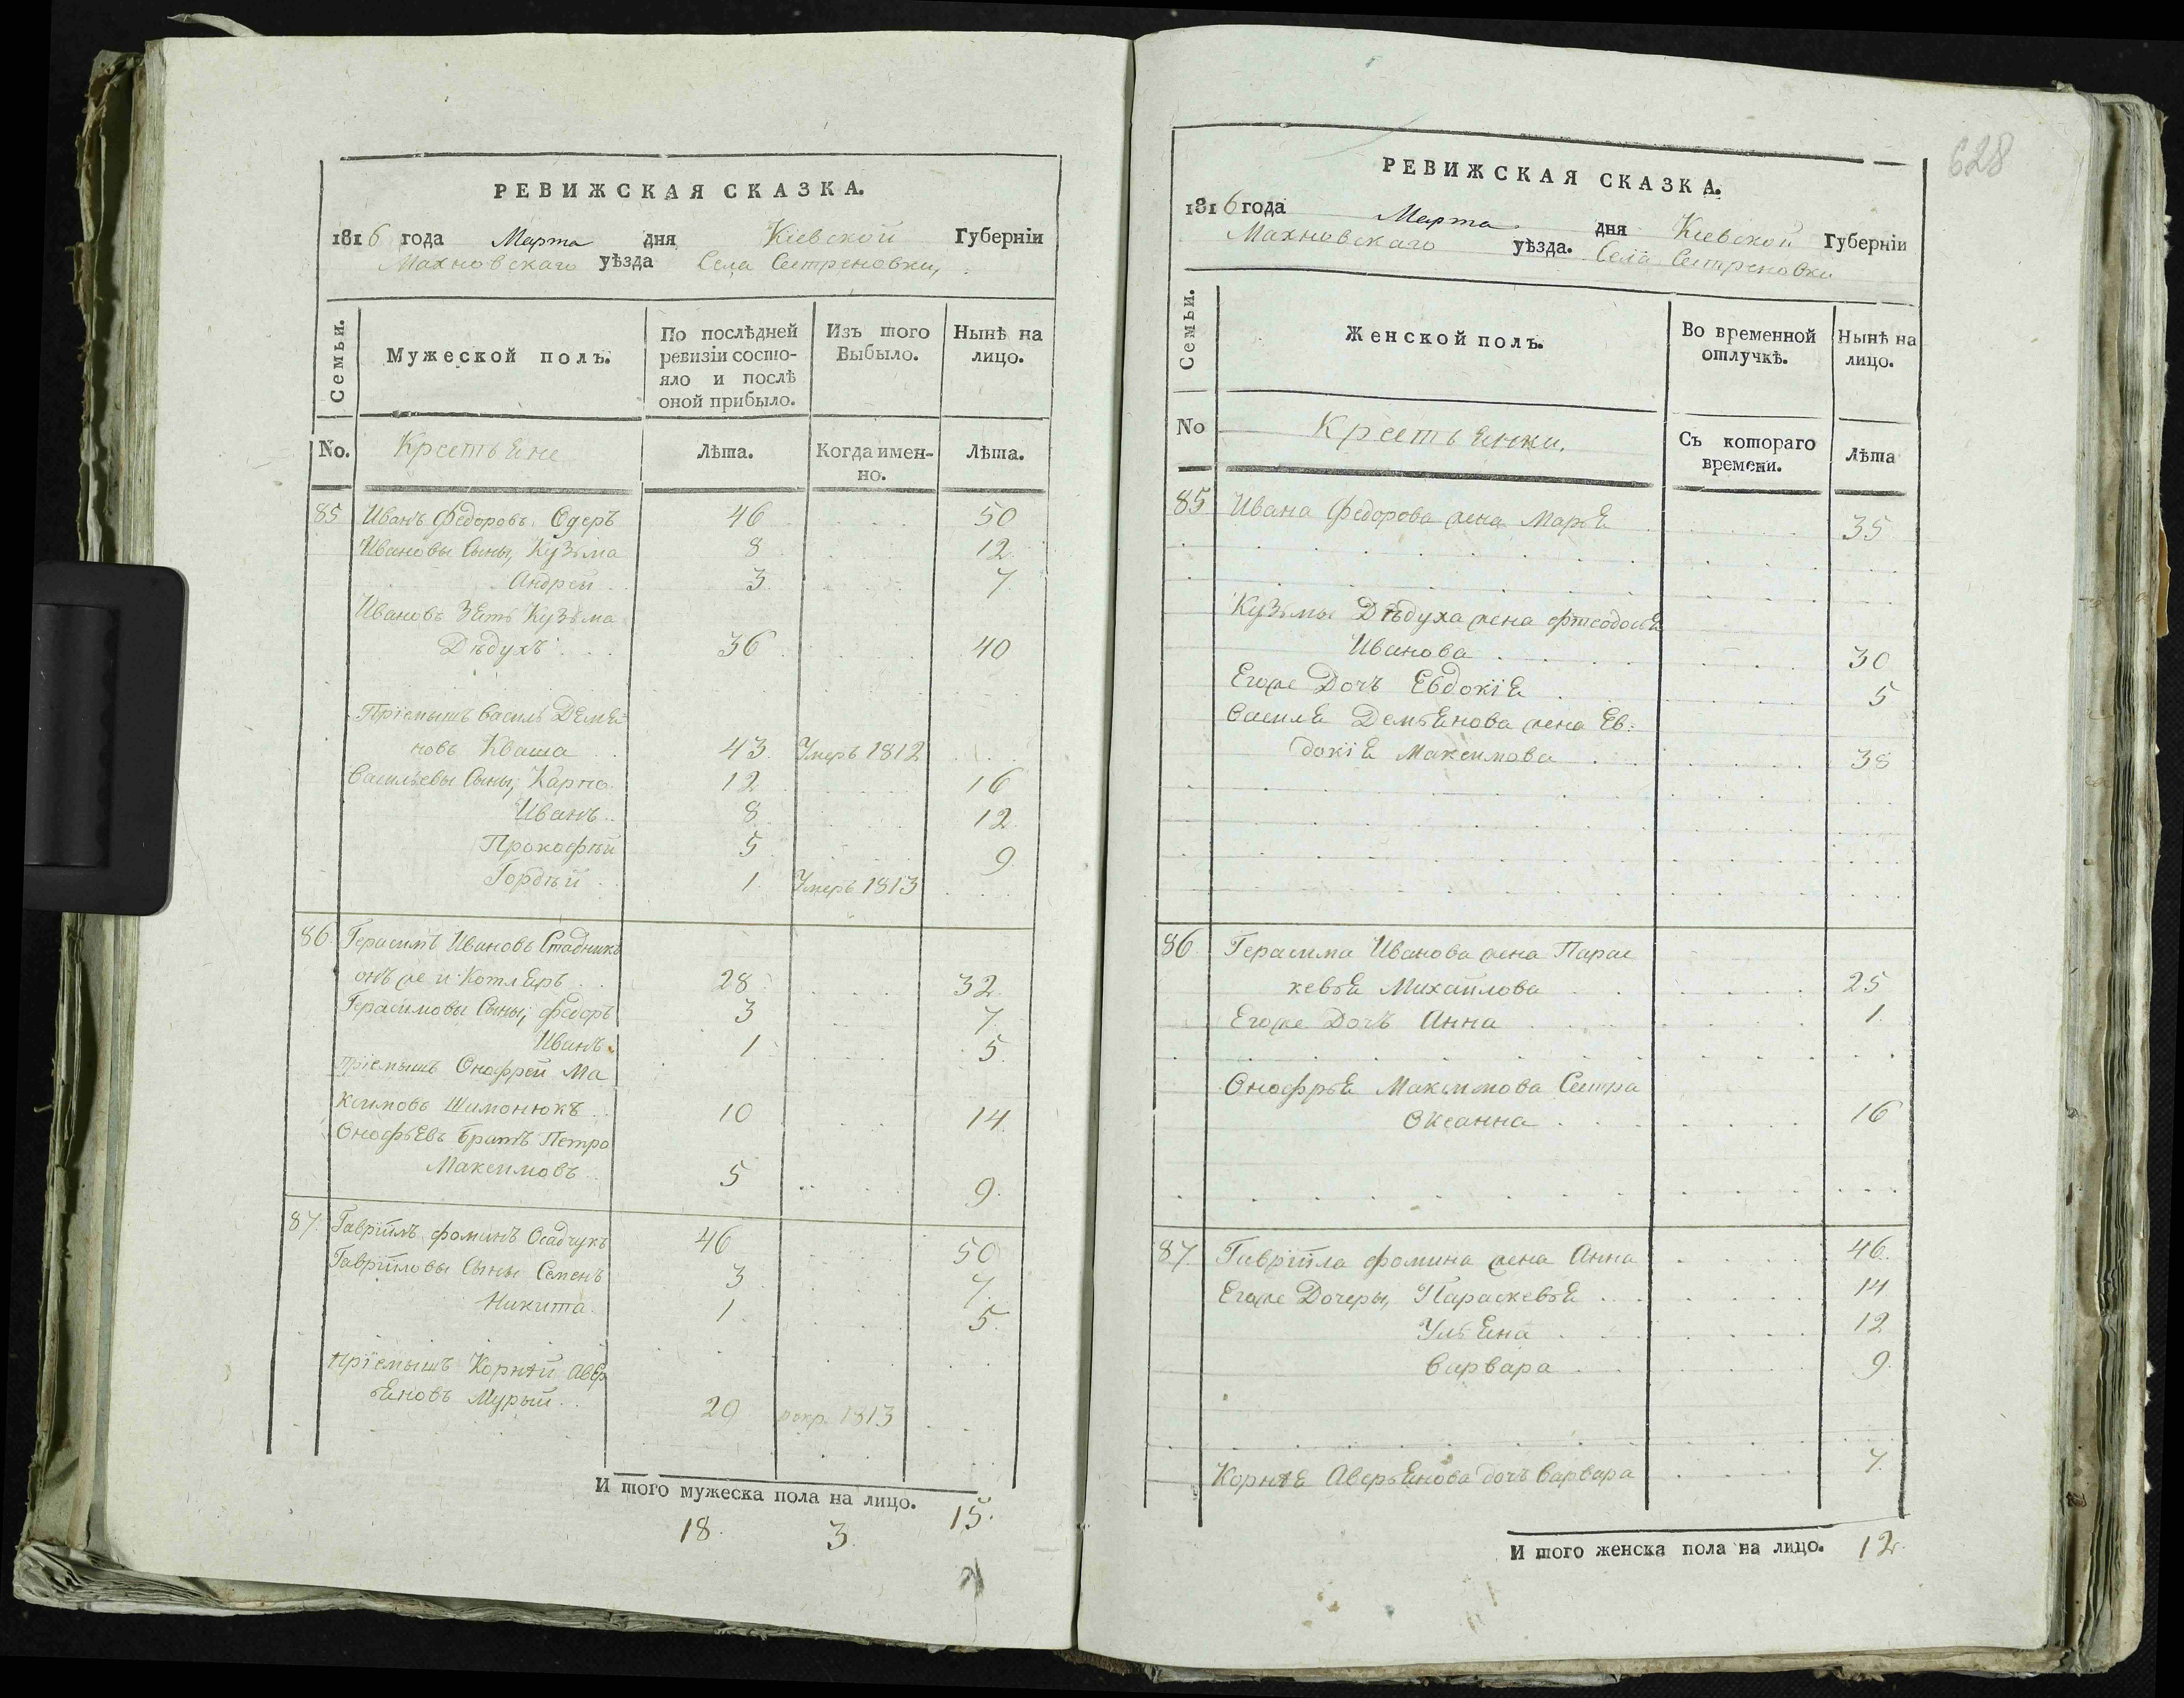 РЕВИЖСКАЯ СКАЗКА.
1816 года Марта дня Кіевской Губерніи
Махновскаго уѣзда Села Сестреновки,
Семьи.
Мужеской полъ.
По послѣдней ревизіи состояло и послѣ оной прибыло.
Изъ того Выбыло.
Нынѣ на лицо.
No. Крестьяне Лѣта. Когда именно. Лѣта.
85 Иванъ Федоровъ Одеръ 46 50
Ивановы Сыны, Кузьма 8 12
Андрей 3 7
Ивановъ Зять Кузьма
Дѣдухъ 36 40
Пріемышъ Василь Демья
новъ Кваша 43 Умеръ 1812
Васильевы Сыны, Карпо 12 16
Иванъ 8 12
Прокофѣй 5 9
Гордѣй 1 Умеръ 1813
86 Герасимъ Ивановъ Стадникъ
онъ же и Котляръ 28 32
Герасимовы Сыны, федоръ 3 7
Иванъ 1 5
Пріемышъ Онофрей Ма
ксимовъ Шимонюкъ 10 14
Онофьевъ Братъ Петро
Максимовъ 5 9
87 Гавріилъ фоминъ Осадчукъ 46 50
Гавріиловы Сыны Семенъ 3 7
Никита 1 5
пріемышъ Корнѣй Авер
ьяновъ Мурый 29 рекр. 1813
И того мужеска пола на лицо.
18 3 15
628
РЕВИЖСКАЯ СКАЗКА.
1816 года Марта дня Кіевской Губерніи
Махновскаго уѣзда. Села Сестреновки
Семьи.
Женской полъ.
Во временной отлучкѣ.
Нынѣ на лицо.
No Крестьянки. Съ котораго времени. Лѣта
85 Ивана федорова жена Марья 35
Кузьмы Дѣдуха жена фтеодосья
Иванова 30
Егоже Дочь Евдокія 5
Василя Демьянова жена Ев:
докія Максимова 38
86 Герасима Иванова жена Парас
кевья Михайлова 25
Егоже Дочь Анна 1
Онофрья Максимова Сестра
Оксанна 16
87 Гавріила фомина жена Анна 46
Егоже Дочеры, Параскевья 14
Ульяна 12
Варвара 9
Корнѣя Аверьянова дочь Варвара 7
И того женска пола на лицо. 12